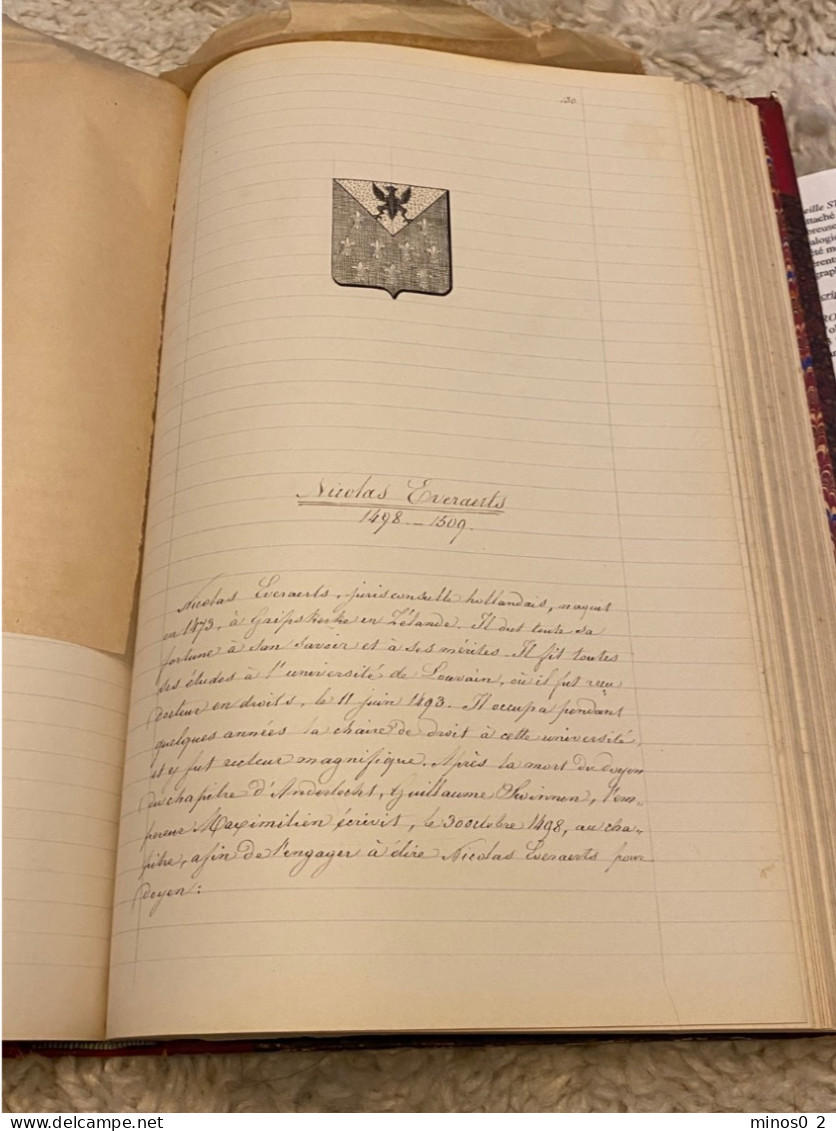 130.
Nicolas Everaerts
1498 - 1509.
Nicolas Everaerts, jurisconsulte hollandais, naquit
en 1473, à Gaifskerke en Zélande. Il dut toute sa
fortune à son savoir et à ses mérites. Il fit toutes
ses études à l'université de Louvain, où il fut reçu
docteur en droits, le 11 juin 1493. Il occupa pendant
quelques années la chaire de droit à cette université,
et y fut recteur magnifique. Après la mort du doyen
du chapitre d'Anderlecht, Guillaume Swinnen, l'em-
pereur Maximilien écrivit, le 30 octobre 1498, au cha-
pitre, afin de l'engager à élire Nicolas Everaerts pour
doyen:
eille S
ttaché
breuse
alogi
été m
érent
graph
cri
RO
minos0_2